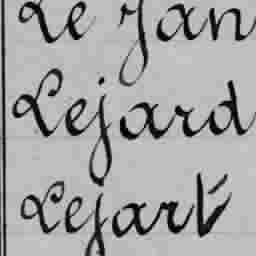 Le Jan
Lejard
Lejart